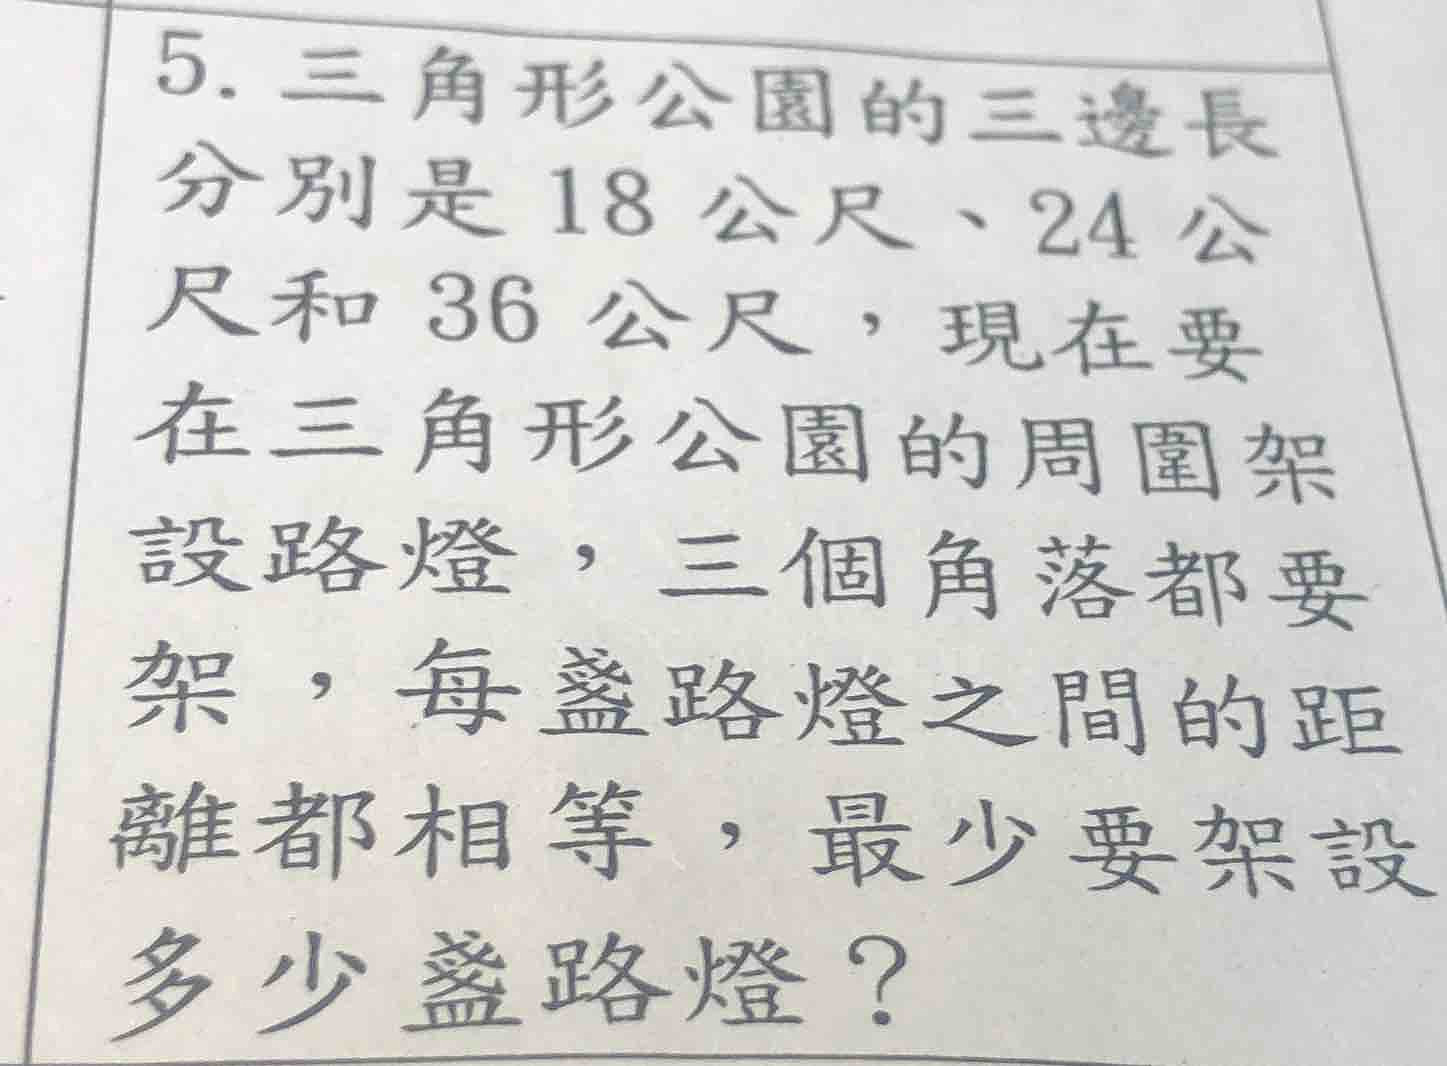 5. 三角形公園的三邊長
分別是 18 公尺、24 公
尺和 36 公尺，現在要
在三角形公園的周圍架
設路燈，三個角落都要
架，每盞路燈之間的距
離都相等，最少要架設
多少盞路燈？